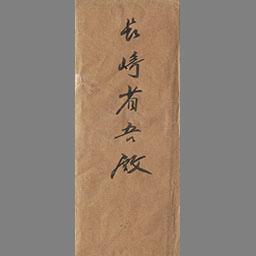 長崎省吾殿